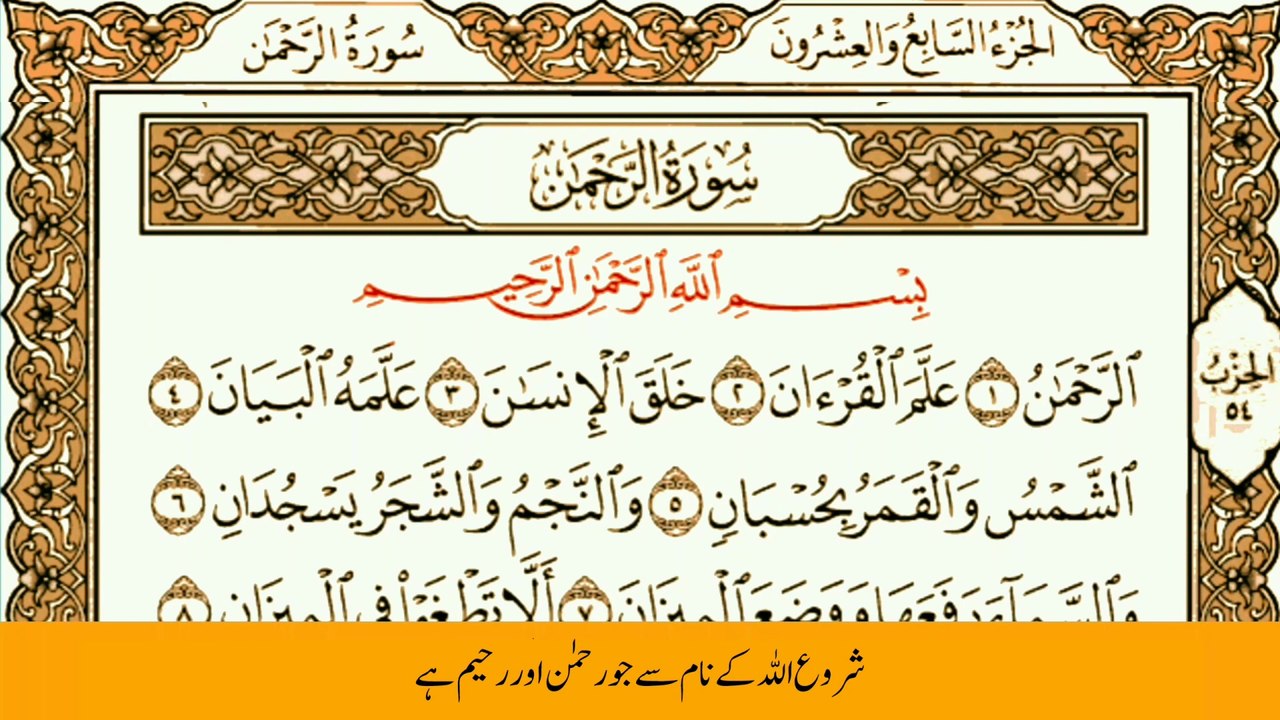 سُورَةُ الرَّحْمَٰن
الجُزْءُ السَّابِعُ وَالعِشْرُونَ
سُورَةُ الرَّحْمَٰن
بِسْمِ ٱللَّهِ ٱلرَّحْمَٰنِ ٱلرَّحِيمِ
ٱلرَّحْمَٰنُ ١ عَلَّمَ ٱلْقُرْءَانَ ٢ خَلَقَ ٱلْإِنسَٰنَ ٣ عَلَّمَهُ ٱلْبَيَانَ ٤
ٱلشَّمْسُ وَٱلْقَمَرُ بِحُسْبَانٍ ٥ وَٱلنَّجْمُ وَٱلشَّجَرُ يَسْجُدَانِ ٦
وَٱلسَّمَآءَ رَفَعَهَا وَوَضَعَ ٱلْمِيزَانَ ٧ أَلَّا تَطْغَوْا۟ فِى ٱلْمِيزَانِ ٨
الحِزْبُ
٥٤
شروع اللہ کے نام سے جو رحمٰن اور رحیم ہے